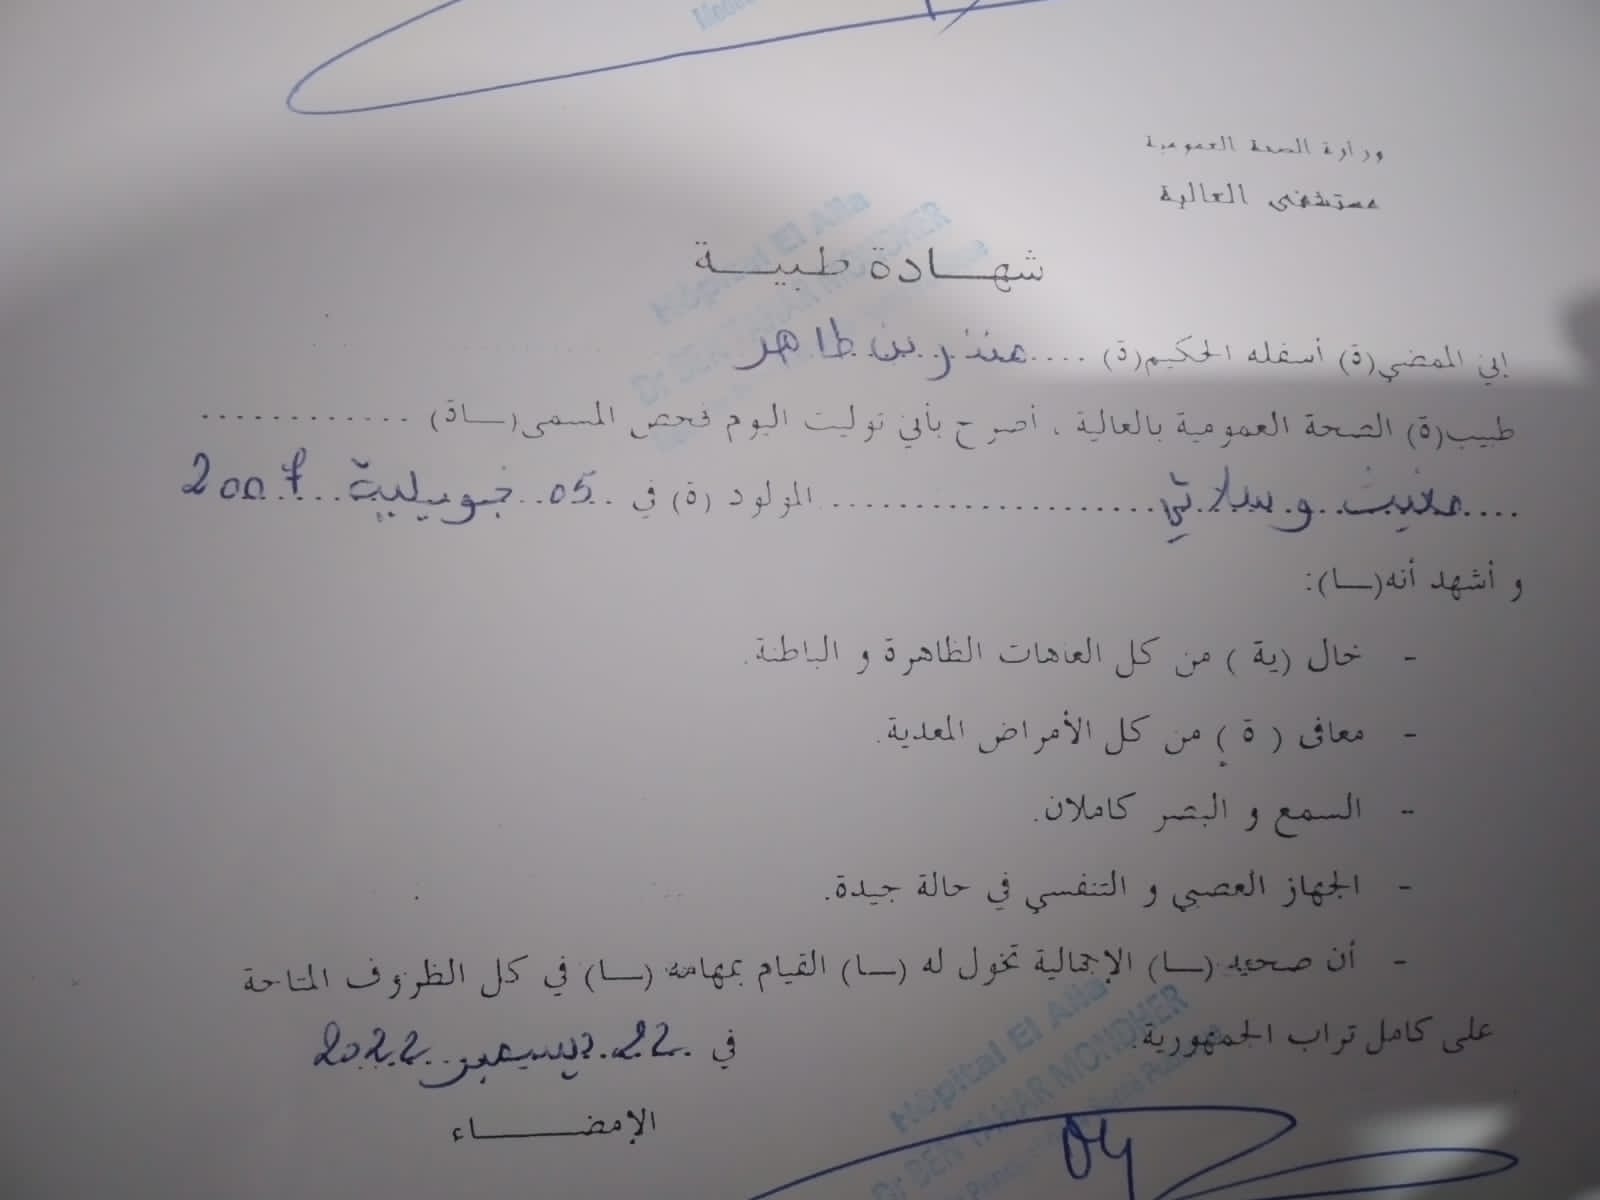 وزارة الصحة العمومية
مستشفى العالية
Hôpital El Alia
Dr BEN TAHAR MONDHER
شهـــادة طبيـــة
إني الممضي(ة) أسفله الحكيم(ة) .... منذر بن طاهر
طبيب(ة) الصحة العمومية بالعالية ، أصرح بأني توليت اليوم فحص المسمى(ـــاة) .............
.... وسلاتي ...................... المولود (ة) في ..05.. جويلية ....2007
و أشهد أنه(ـــا):
- خال (ية ) من كل العاهات الظاهرة و الباطنة.
- معافى ( ة ) من كل الأمراض المعدية.
- السمع و البصر كاملان.
- الجهاز العصبي و التنفسي في حالة جيدة.
- أن صحيته (ـــا) الإجمالية تخول له (ـــا) القيام بمهامه (ـــا) في كل الظروف المتاحة
على كامل تراب الجمهورية.
في ..22.. ديسمبر ..2022
Hôpital El Alia
Dr BEN TAHAR MONDHER
الإمضـــــــاء